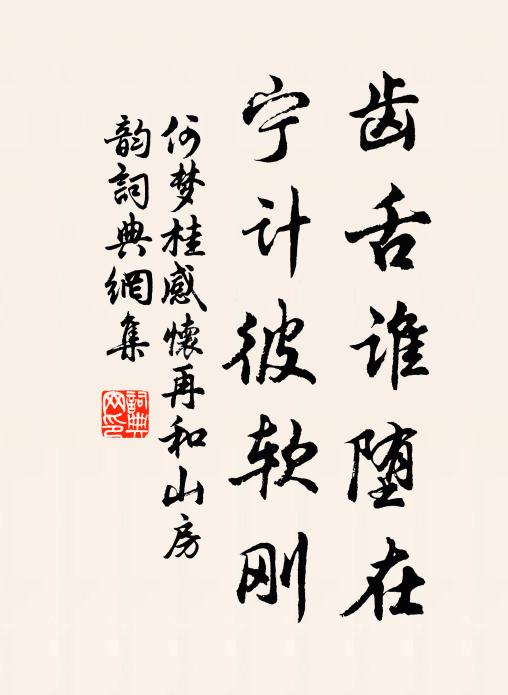 齿舌谁堕在
宁计彼软刚
何梦桂感懷再和山房
韵詞典網集
詞典网印